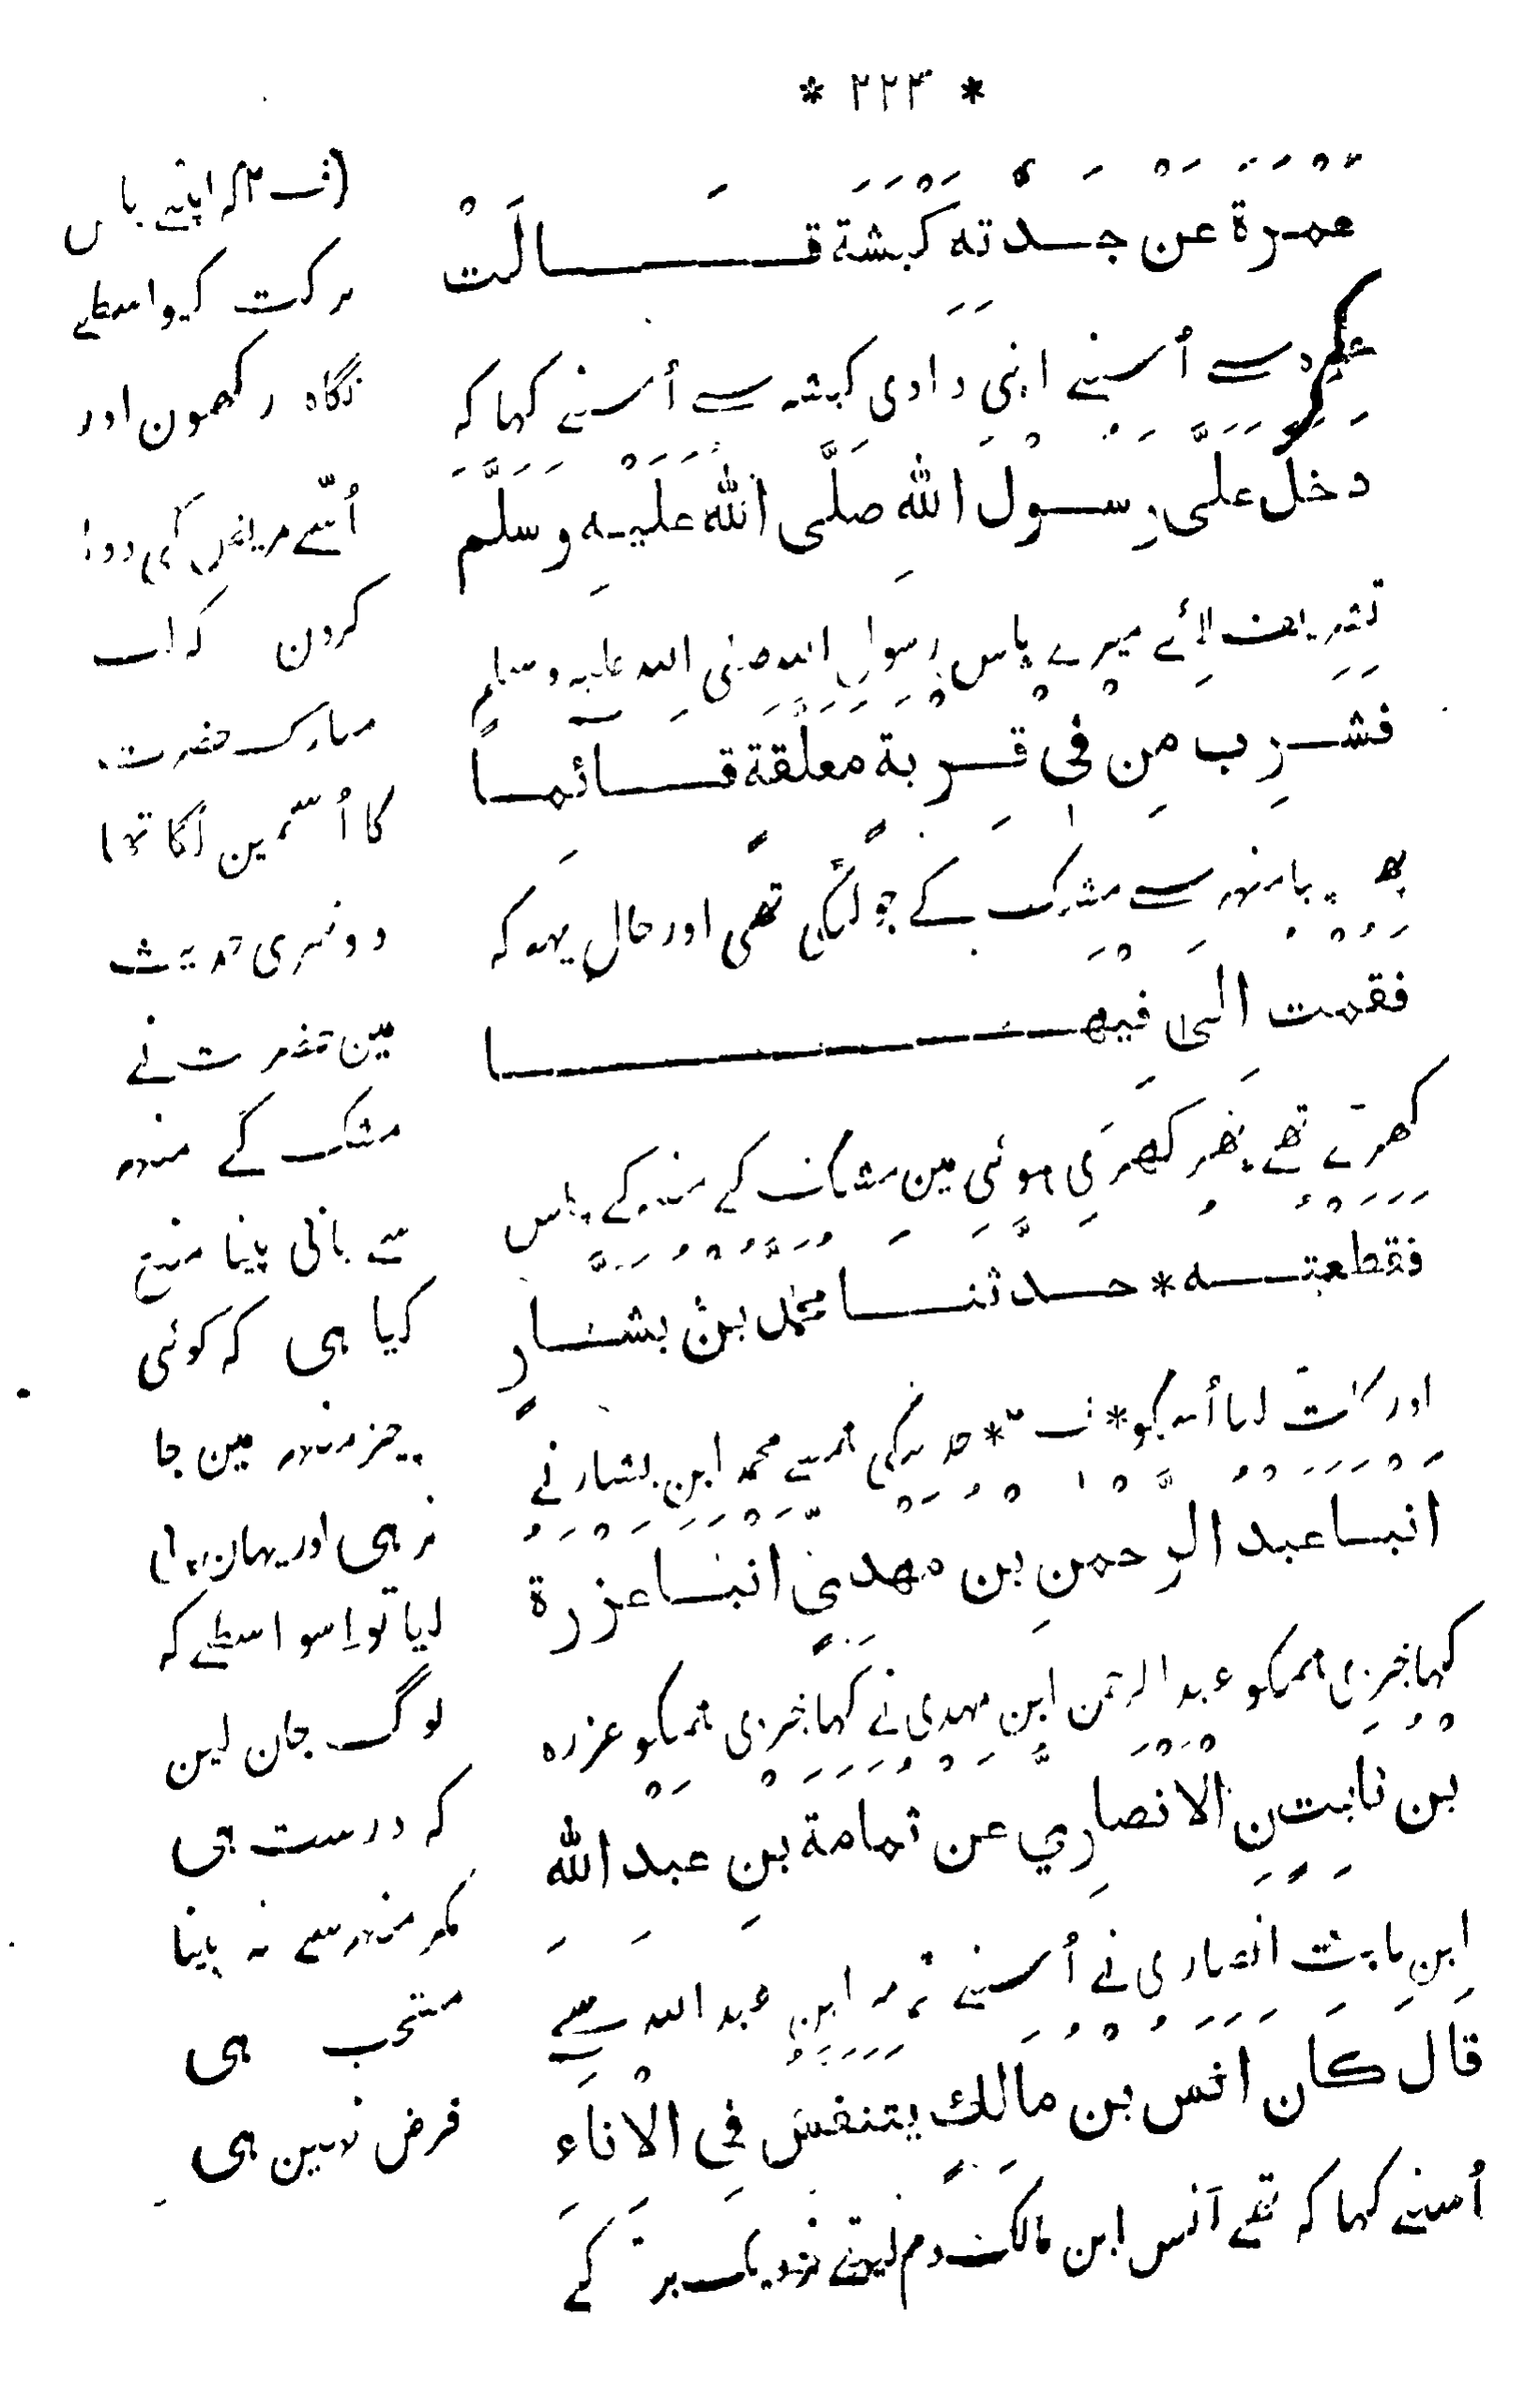 * ٢٢٣ *
عمرة عن جدته كبشة قالت
عمره سے اُسنے اپنی دادی کبشہ سے اُسنے کہا کہ
دخل علَىَّ رسول الله صلَّى الله عليه وسلَّم
تشریف لائے میرے پاس رسول الله صلی الله علیہ وسلم
فشرب من فى قربة معلقة قائمًا
منہہ سے مشک کے جو لٹکی تھی اور حال یہہ کہ
فقمت الى فيها
کھڑے تھے پھر کھڑی ہوئی مین مشک کے منہ کے پاس
فقطعته * حدثنا محمد بن بشار
اور کاٹ لیا اُسکو * ف ٢ * حدیث کی ہمسے محمد ابن بشار نے
انبا عبد الرحمن بن مهدي انبا عزرة
کہا خبر دی ہمکو عبد الرحمن ابن مہدی نے کہا خبر دی ہمکو عزرہ
بن ثابتن الْانصاري عن ثمامة بن عبد الله
ابن ثابت انصاری نے اُسنے ابن عبد الله سے
قال كان انس بن مالك يتنفس فى الْاناء
اُسنے کہا کہ تھے انس ابن مالک دم لیتے نزدیک کے
(ف ٢ کہ اپنے پاس
برکت کیواسطے
نگاہ رکھون اور
اُسّے مریض کی دوا
کرون کہ لب
مبارک حضرت
کا اُسّمین لگا تھا
دوسری حدیث
مین حضرت نے
مشک کے منہہ
سے پانی پینا منع
کیا ہی کہ کوئی
چیز منہہ مین جا
نرہی اور یہان
لیا تو اِسواسطے کہ
لوگ جان لین
کہ درست ہی
مگر منہہ سے نہ پینا
مستحب ہی
فرض نہین ہی